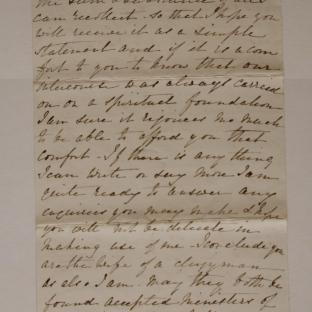 the sum & substance of all I
can recollect. So that I hope you
will receive it as a simple
statement and if it is a com
fort to you to know that our
intercourse was always carried
on on a spiritual foundation
I am sure it rejoices me much
to be able to afford you that
comfort. If there is any thing
I can write or say more I am
quite ready to answer any
enquiries you may make & hope
you will not be delicate in
making use of me. I conclude you
are the wife of a clergyman
as also I am. May they both be
found accepted ministers of